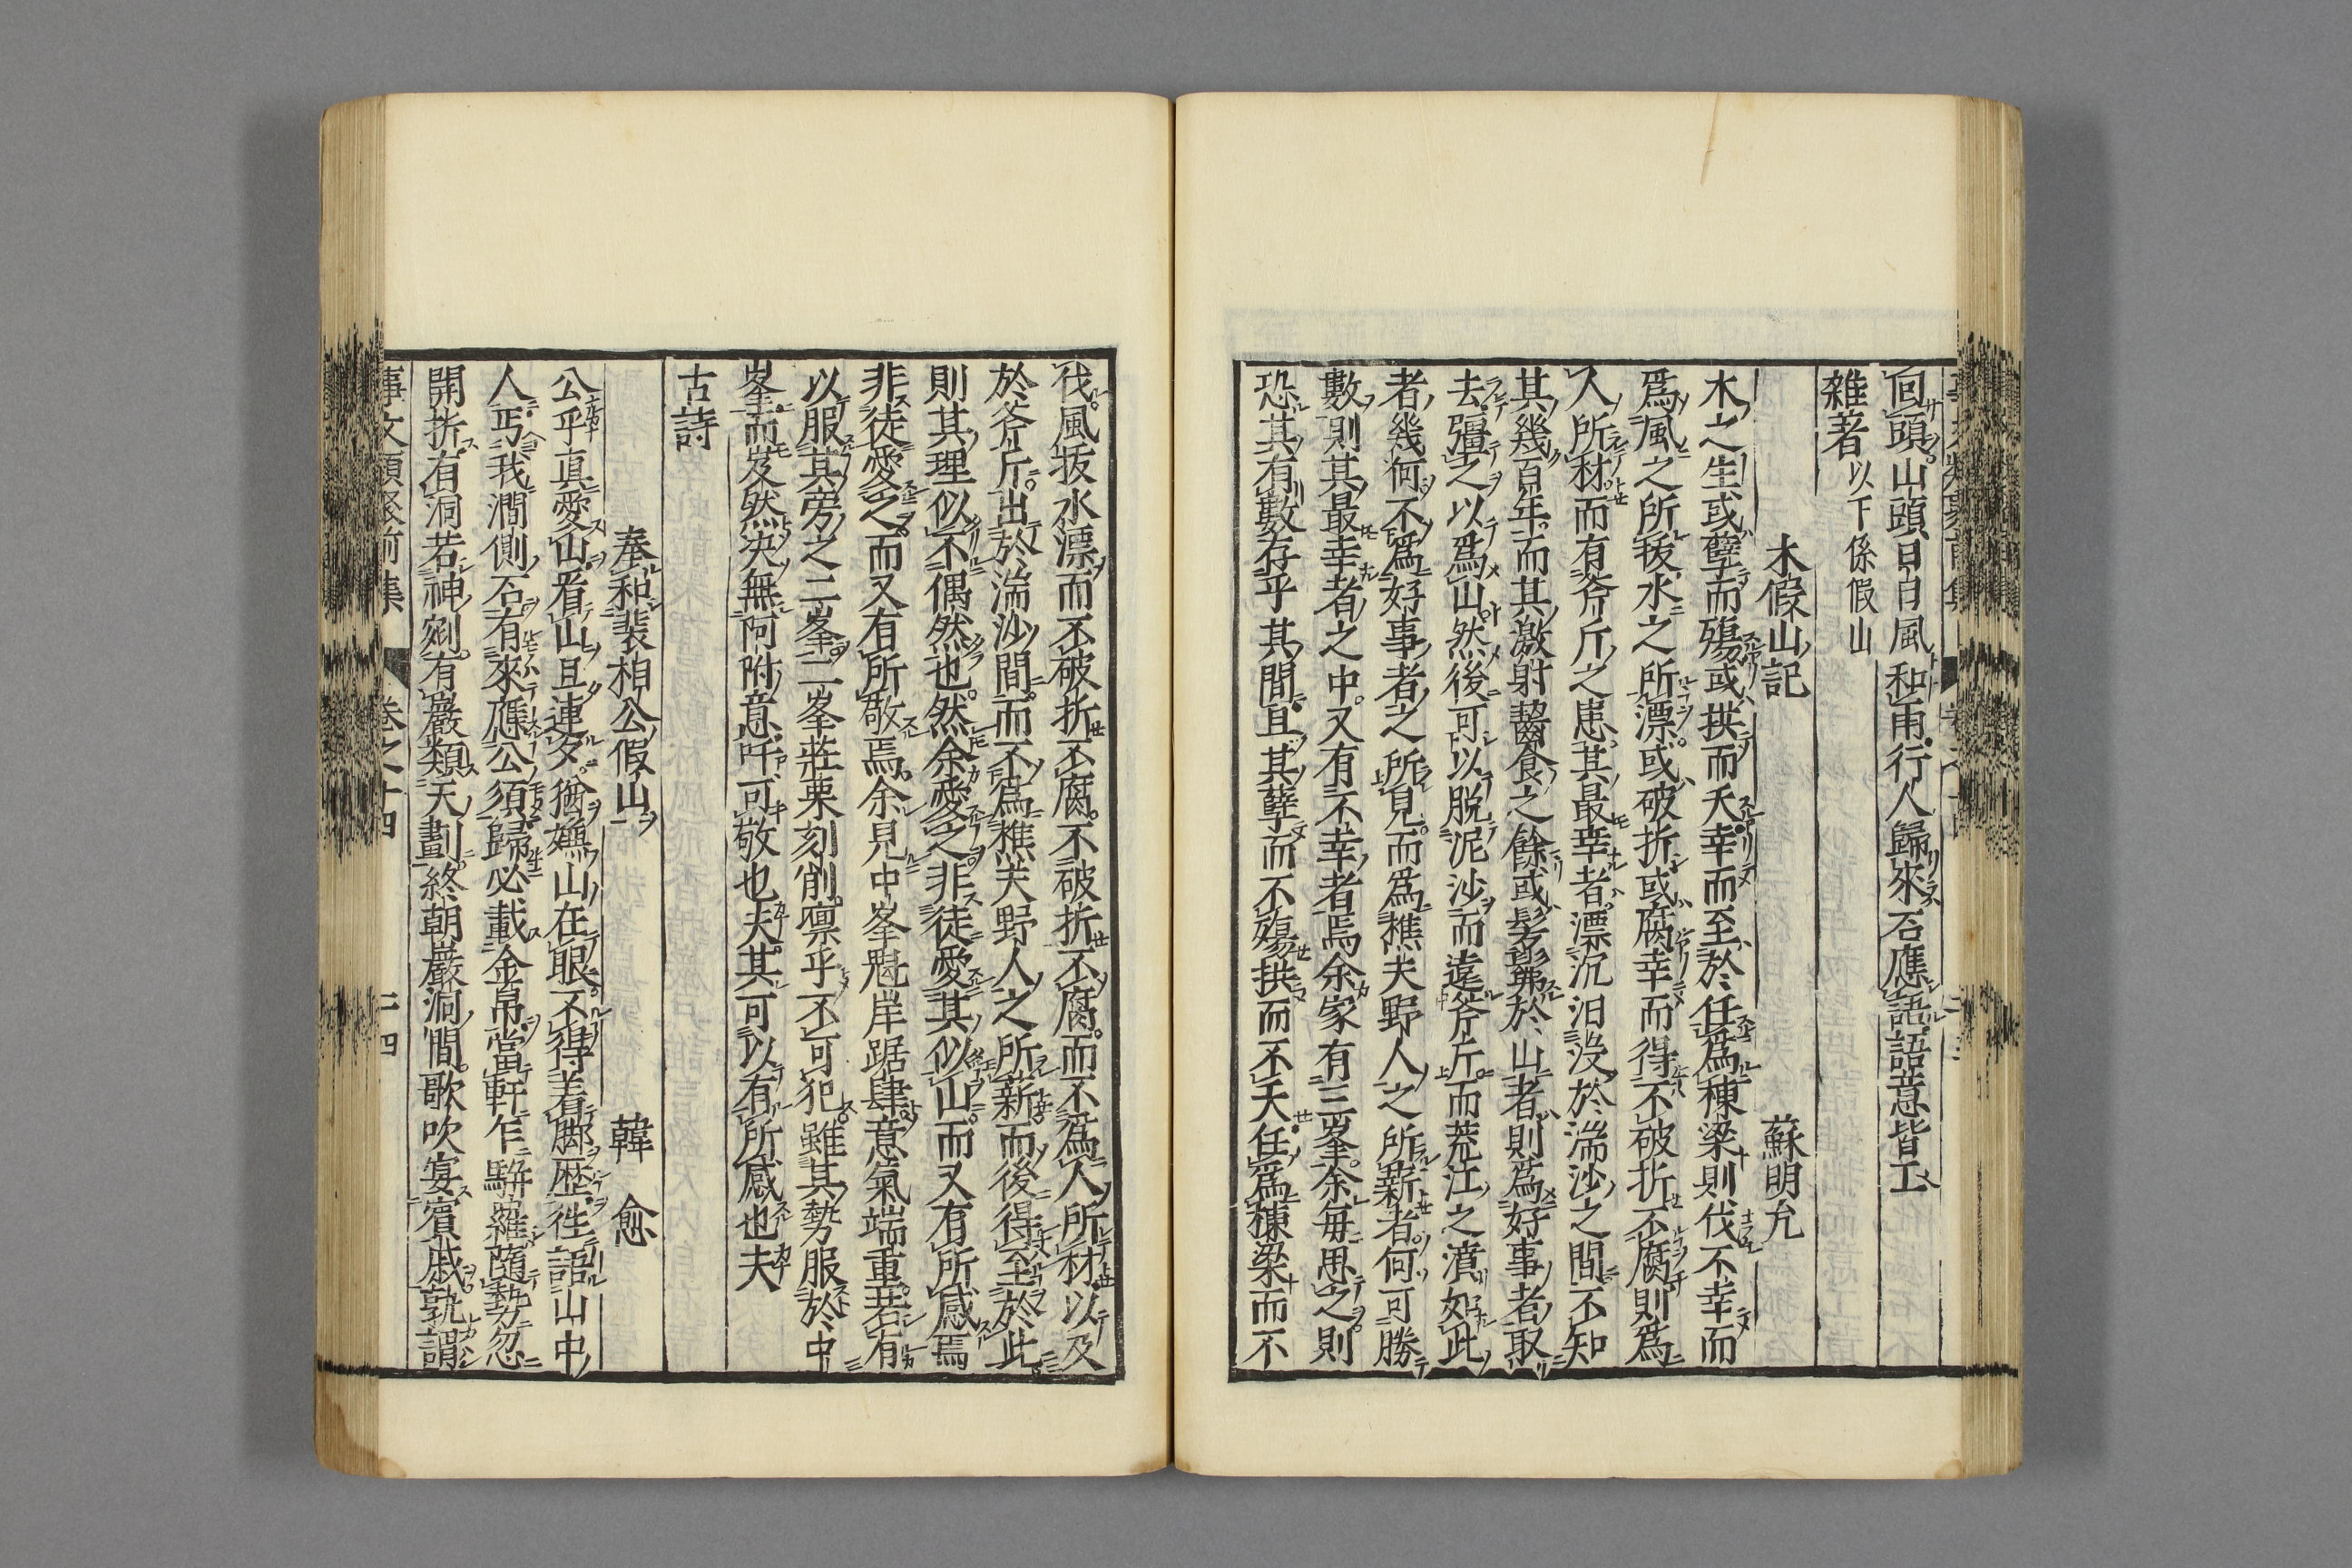 回頭山頭日日風和雨行人歸來石應語語意皆工
雜著以下係假山
木假山記　蘇明允
木之生或孽而殤或拱而夭幸而至於任爲棟梁則伐不幸而
爲風之所拔水之所漂或破折或腐幸而得不破折不腐則爲
人所材而有斧斤之患其最幸者漂沉汨沒於湍沙之間不知
其幾百年而其激射齧食之餘或髣髴於山者則爲好事者取
去彊之以爲山然後可以脱泥沙而遠斧斤而荒江之濆如此
者幾何不爲好事者之所見而爲樵夫野人之所薪者何可勝
數則其最幸者之中又有不幸者焉余家有三峯余每思之則
恐其有數存乎其間且其孽而不殤拱而不夭任爲棟梁而不
伐風拔水漂而不破折不腐不破折不腐而不爲人所材以及
於斧斤出於湍沙間而不爲樵夫野人之所薪而後得至於此
則其理似不偶然也然余愛之非徒愛其似山而又有所感焉
非徒愛之而又有所敬焉余見中峯魁岸踞肆意氣端重若有
以服其旁之二峯二峯莊栗刻削凛乎不可犯雖其勢服於中
峯而岌然决無阿附意吁可敬也夫其可以有所感也夫
古詩
奉和裴相公假山　韓愈
公乎真愛山看山且連夕猶嫌山在眼不得着脚歷徃語山中
人丐我澗側石有來應公須歸必載金帛當軒乍駢羅隨勢忽
開拆有洞若神剜有巖類天劃終朝巖洞間歌吹宴賓戚孰謂
事文類聚前集　卷之十四　二四